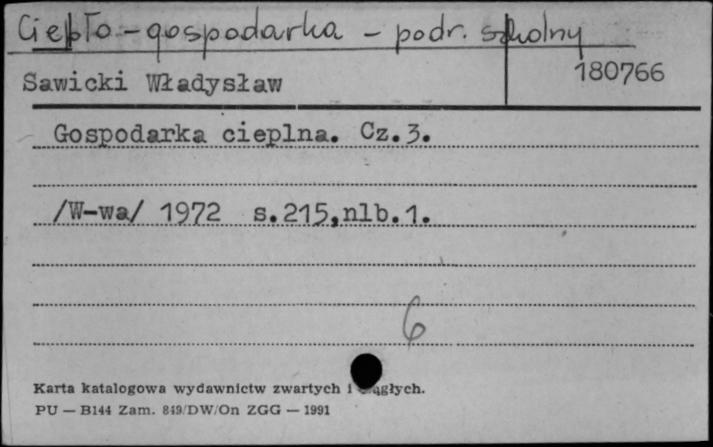 Ciepło - gospodarka - podr. szkolny
Sawicki Władysław 180766
Gospodarka cieplna. Cz.3.
/W-wa/ 1972 s.215,nlb.1.
6
Karta katalogowa wydawnictw zwartych i ciągłych.
PU — B144 Zam. 849/DW/On ZGG — 1991